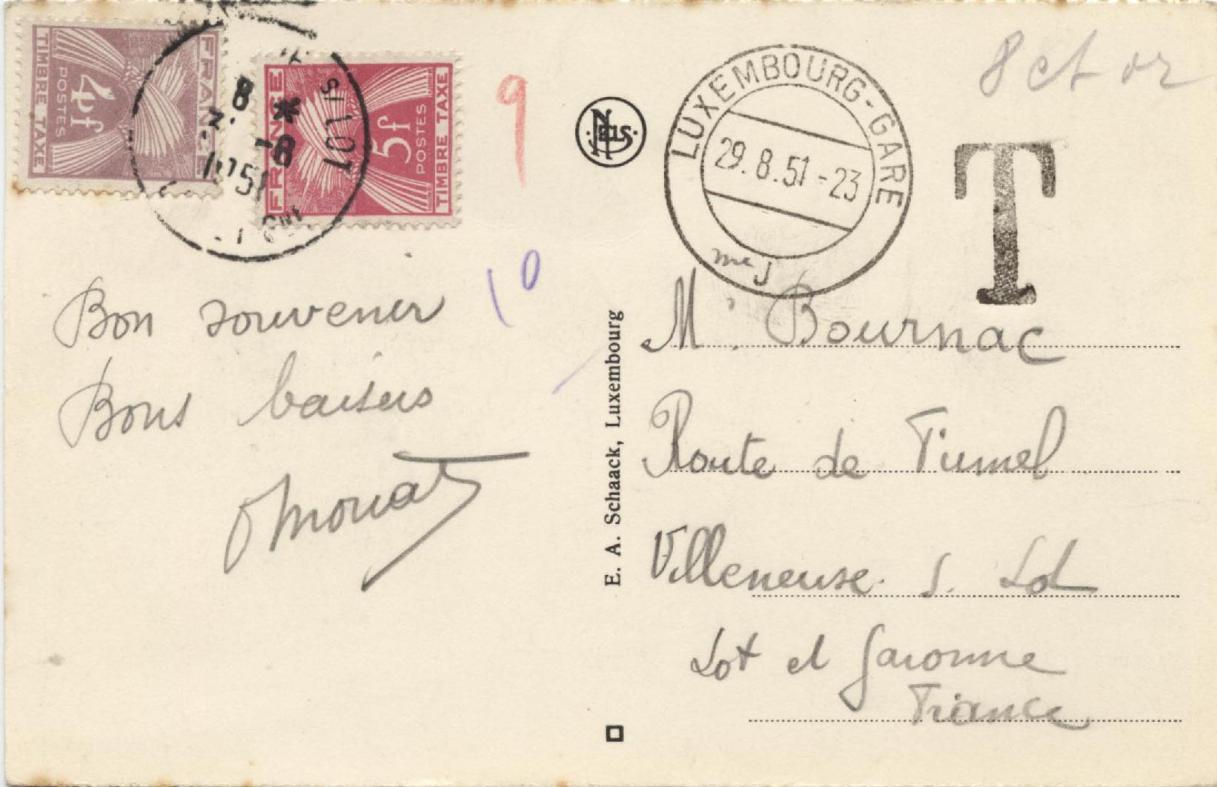 FRANCE
4f
POSTES
TIMBRE TAXE
FRANCE
5f
POSTES
TIMBRE TAXE
S/LOT
8 *
-8
1951
9
10
LUXEMBOURG-GARE
29.8.51-23
8 ct or
T
Bon souvenir
Bons baisers
E. A. Schaack, Luxembourg
Mme J
Mr. Bournac
Route de Fumel
Villeneuse s. Lot
Lot et Garonne
France